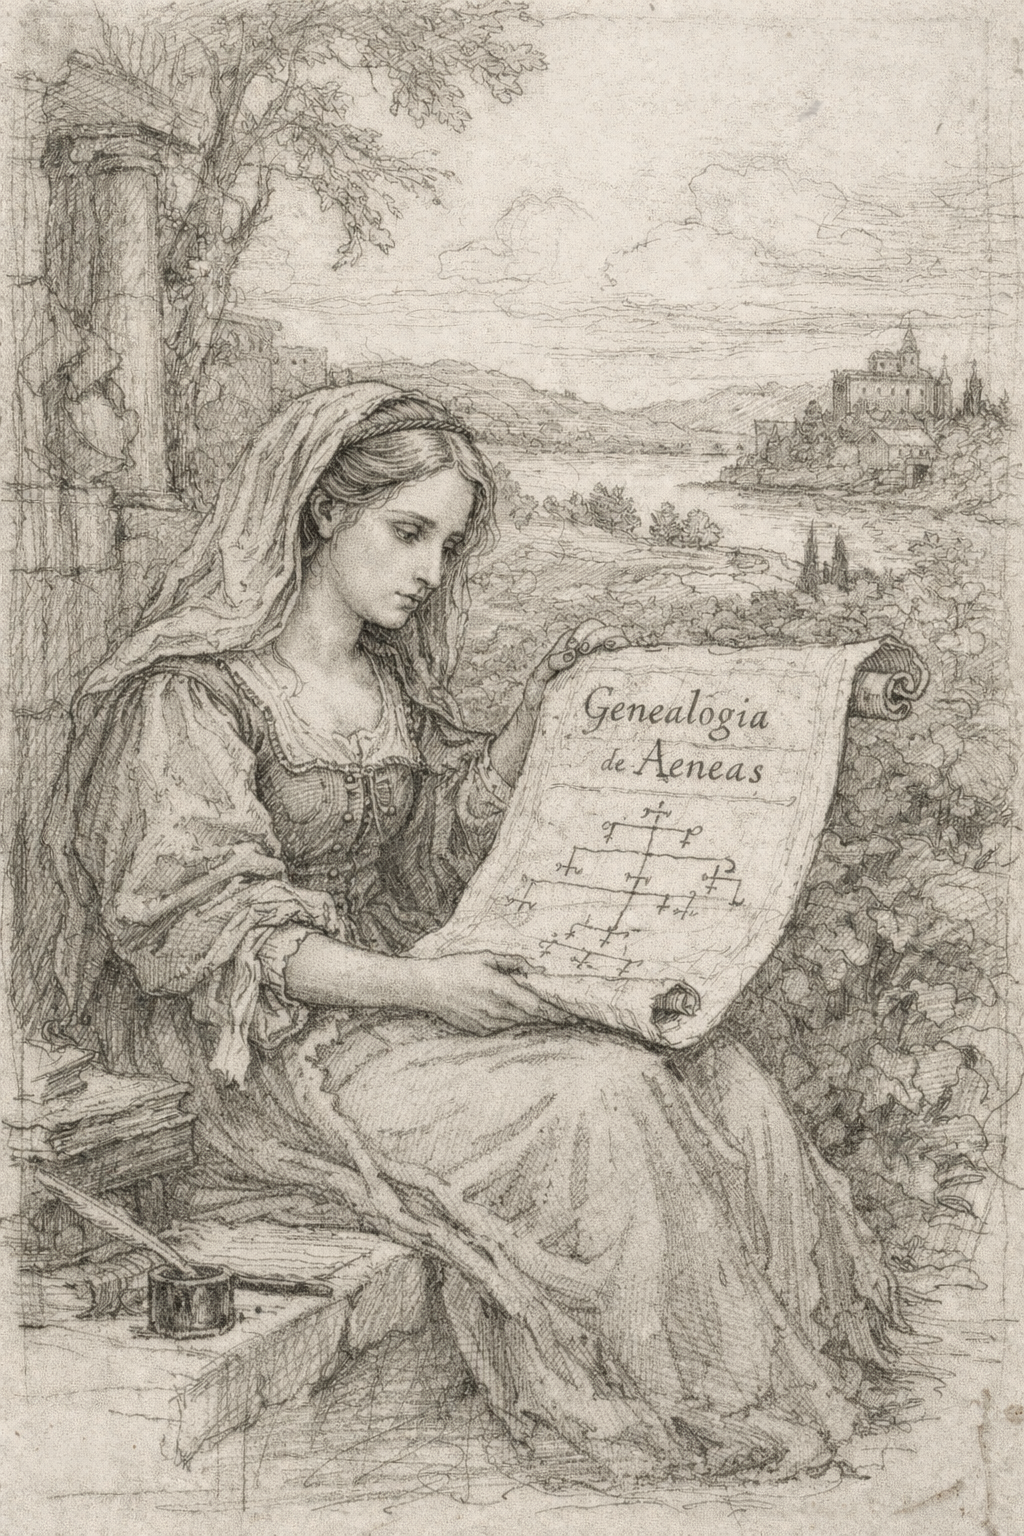 Genealogia
de Aeneas